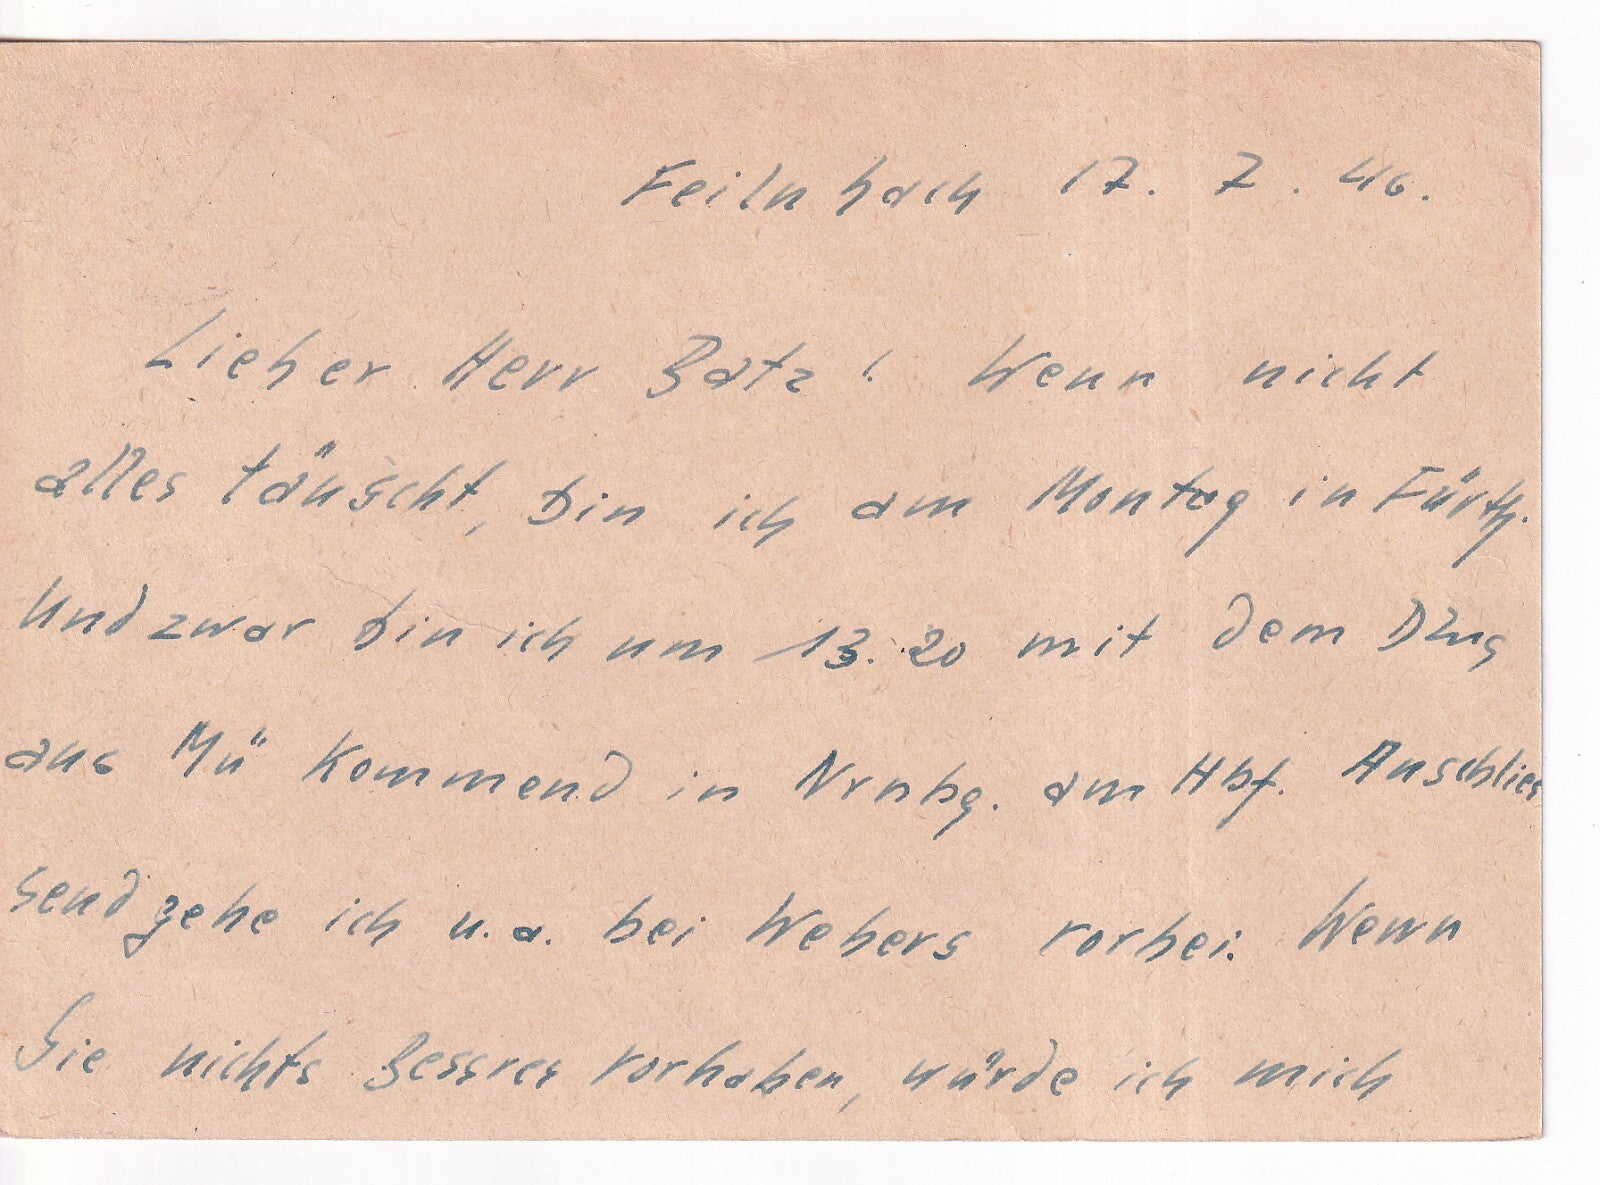 Feilnbach 17. 7. 46.
Lieber Herr Batz! Wenn nicht
alles täuscht, bin ich am Montag in Fürth.
Und zwar bin ich um 13.20 mit dem DZug
aus Mü kommend in Nrnbg. am Hbf. Anschlies
send gehe ich u. a. bei Webers vorbei. Wenn
Sie nichts Bessres vorhaben, würde ich mich